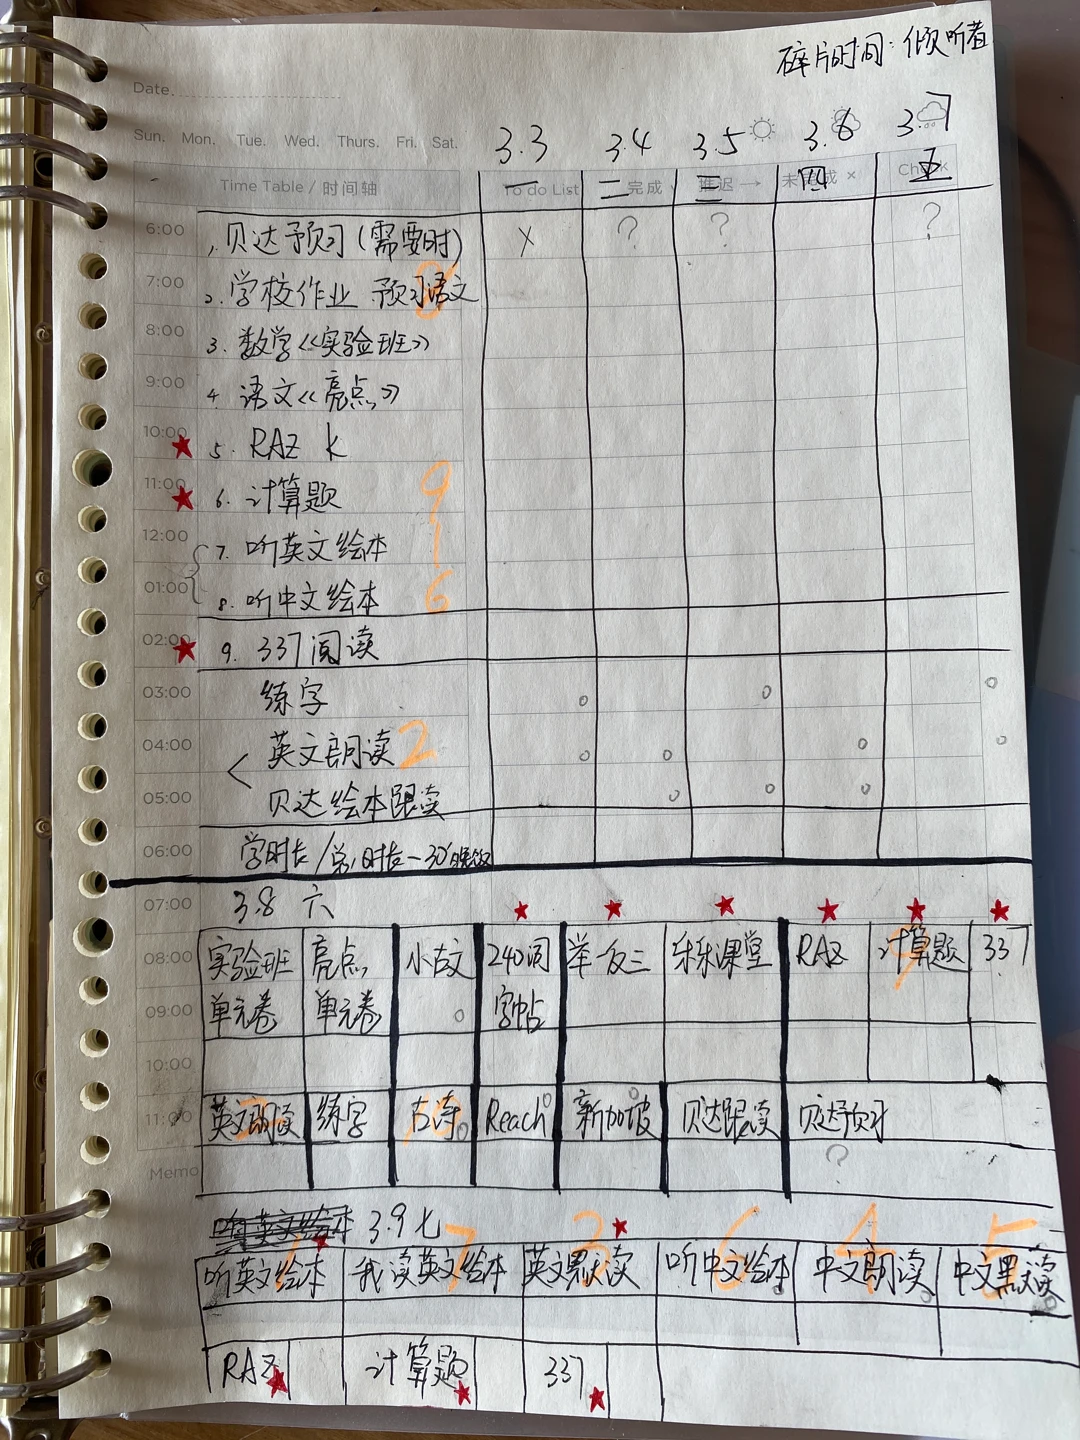 碎片时间：倾听者
Date.
Sun. Mon. Tue. Wed. Thurs. Fri. Sat.
3.3 3.4 3.5 3.6 3.7
Time Table / 时间轴 To do List 完成 推迟 → 未完成 ×
一 二 三 四 五
6:00 1. 贝达预习(需要时) × ? ? ?
7:00 2. 学校作业 预习语文
8:00 3. 数学《实验班》
9:00 4. 语文《亮点》
10:00 ★ 5. RAZ K
11:00 ★ 6. 计算题 9
12:00 7. 听英文绘本 1
01:00 8. 听中文绘本 6
02:00 ★ 9. 337阅读
03:00 练字
04:00 英文朗读 2
05:00 贝达绘本跟读
06:00 学时长/总时长-30'晚饭
07:00 3.8 六 ★ ★ ★ ★ ★ ★
08:00 实验班 亮点 小古文 240词 举一反三 乐乐课堂 RAZ 计算题 337
09:00 单元卷 单元卷 字帖
10:00
11:00 英文朗读 练字 古诗 Reach 新加坡 贝达跟读 贝达预习
?
Memo
听英文绘本 3.9 七 ★
听英文绘本 我读英文绘本 英文默读 听中文绘本 中文朗读 中文默读
1 7 3 6 4 5
RAZ ★ 计算题 ★ 337 ★